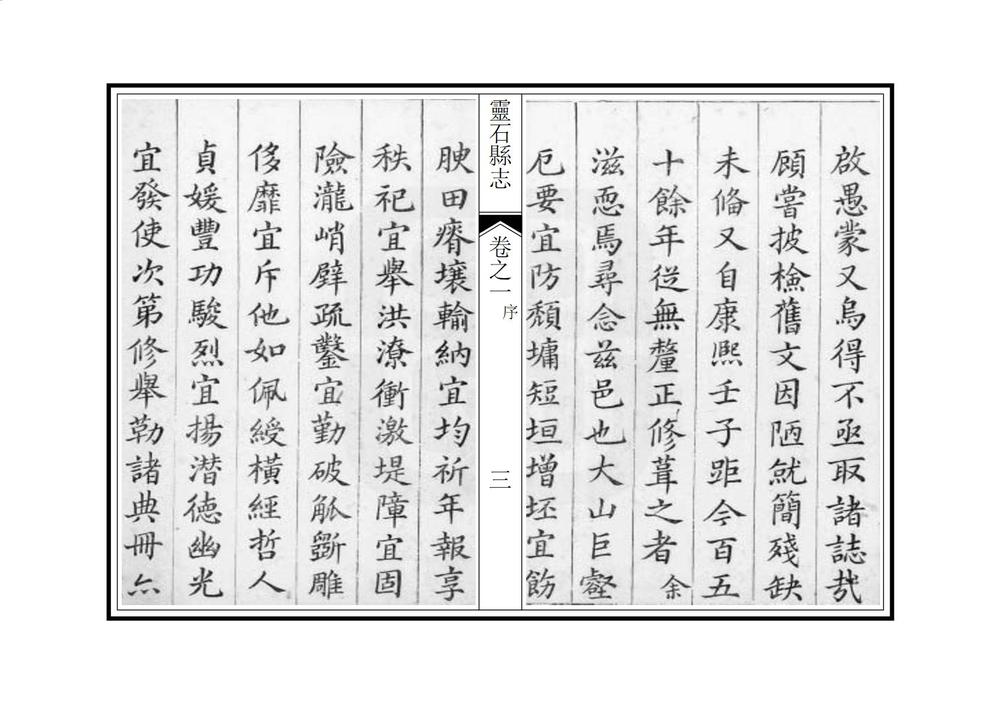 啟愚蒙又烏得不亟取諸誌哉
顧嘗披檢舊文因陋就簡殘缺
未俻又自康熙壬子距今百五
十餘年從無釐正修葺之者余
滋恧焉尋念兹邑也大山巨壑
厄要宜防頹墉短垣增坯宜飭
靈石縣志
卷之一
序
三
腴田瘠壤輸納宜均祈年報享
秩祀宜舉洪潦衝激堤障宜固
險瀧峭壁疏鑿宜勤破觚斵雕
侈靡宜斥他如佩綬橫經哲人
貞媛豐功駿烈宜揚潜德幽光
宜發使次第修舉勒諸典冊亦